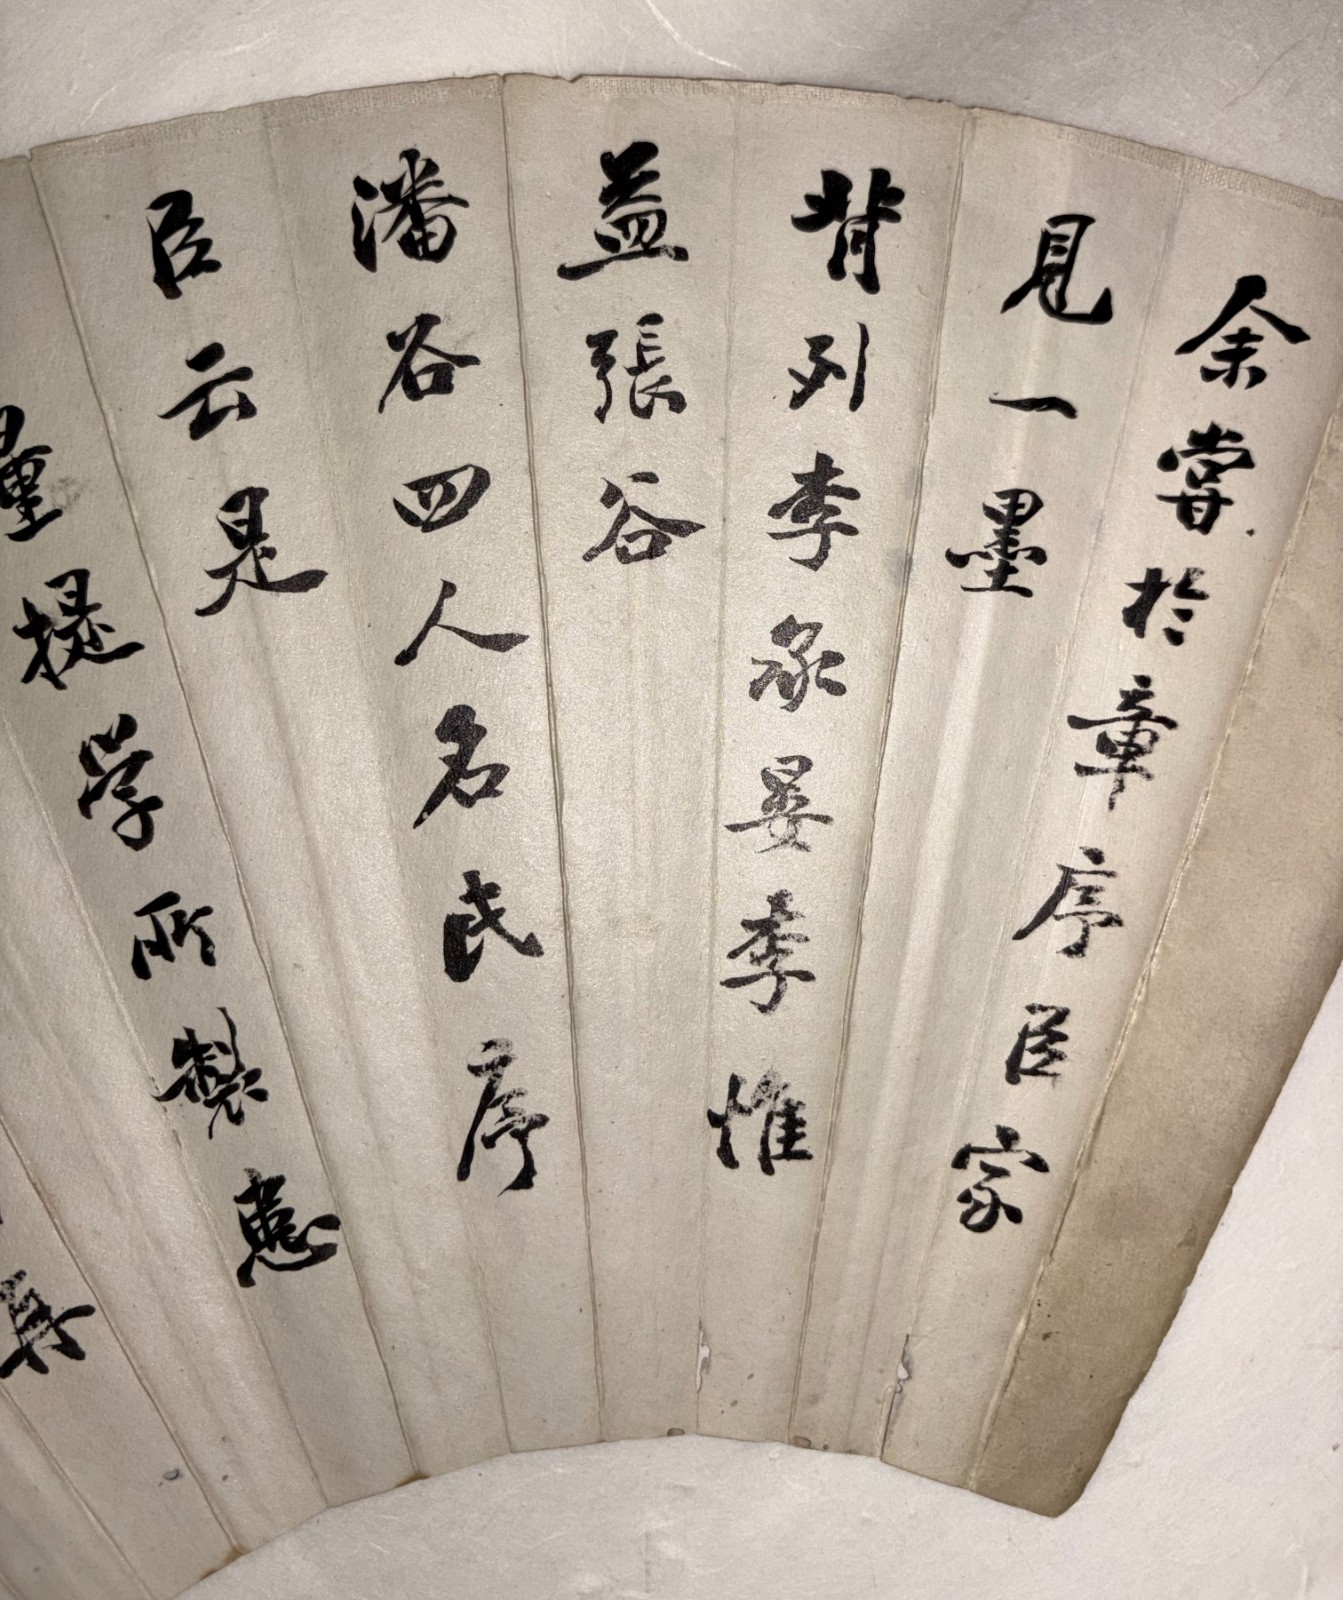 余嘗於章序臣家
見一墨
背列李承晏李惟
益張谷
潘谷四人名氏序
臣云是
量提学所製患